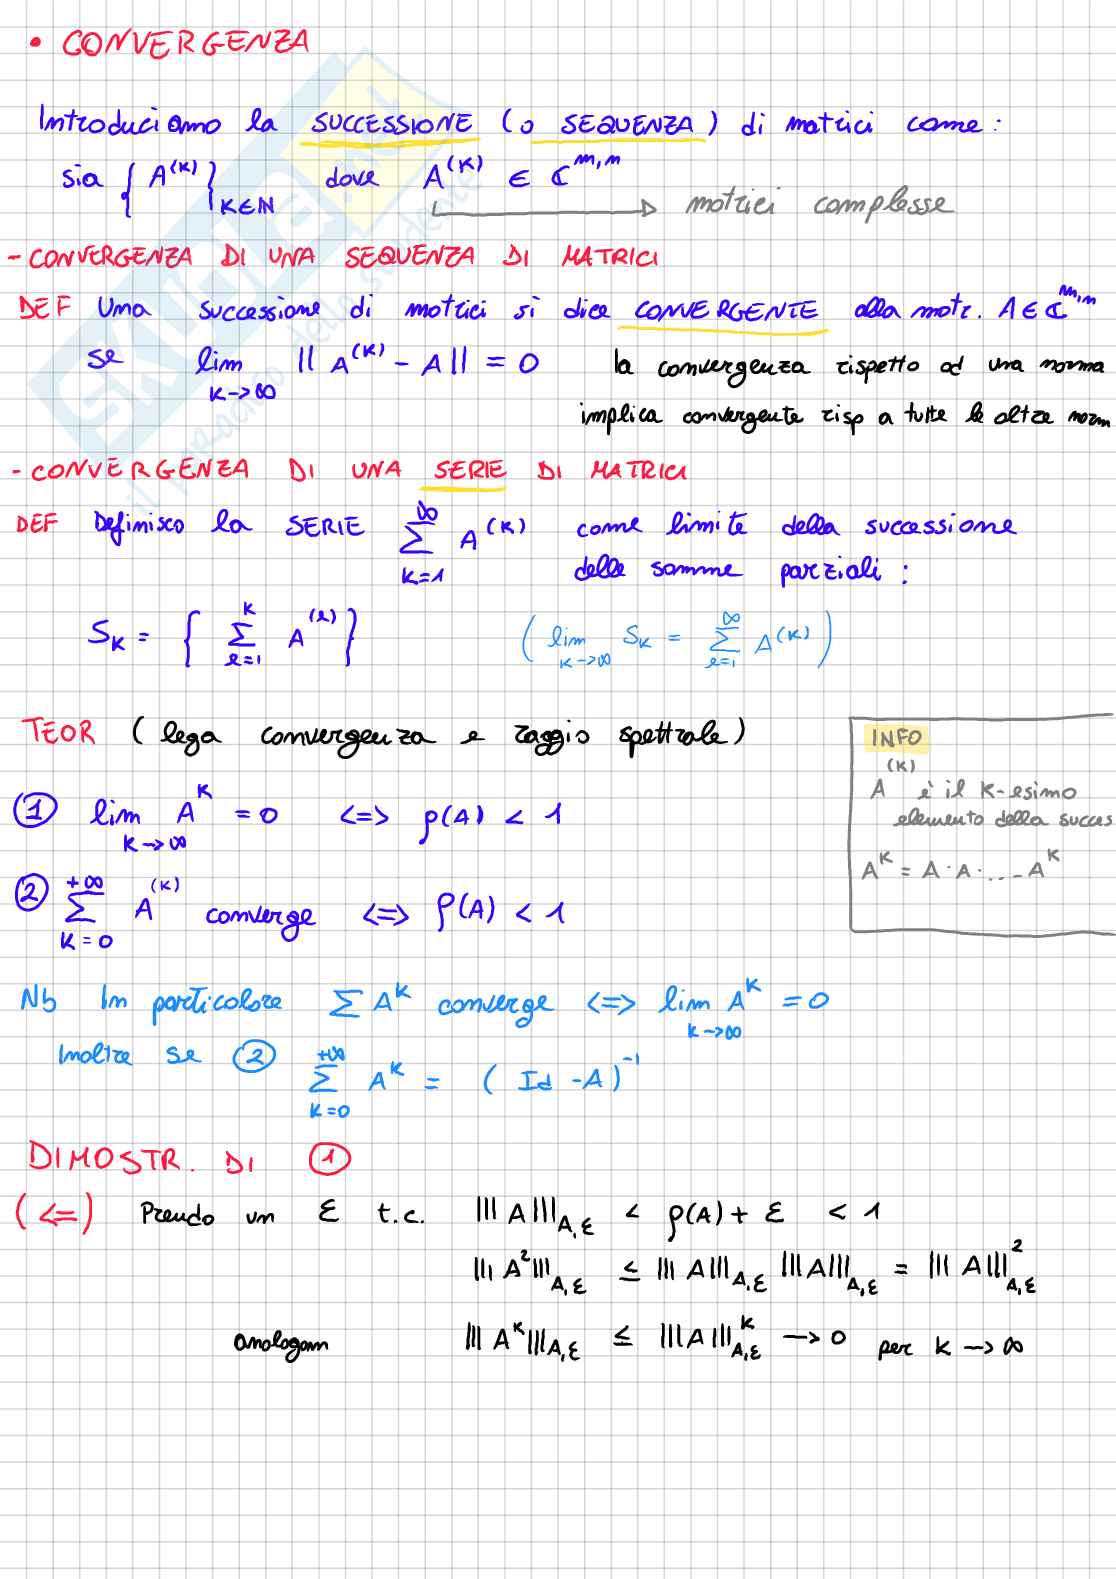 • CONVERGENZA
Introduciamo la SUCCESSIONE (o SEQUENZA) di matrici come:
sia { A^(K) }_K∈ℕ dove A^(K) ∈ ℂ^m,n
matrici complesse
- CONVERGENZA DI UNA SEQUENZA DI MATRICI
DEF Una successione di matrici si dice CONVERGENTE alla matr. A ∈ ℂ^m,n
se lim_K→∞ || A^(K) - A || = 0
la convergenza rispetto ad una norma
implica convergente risp a tutte le altre norm
- CONVERGENZA DI UNA SERIE DI MATRICI
DEF Definisco la SERIE ∑_K=1^∞ A^(K) come limite della successione
delle somme parziali :
S_K = { ∑_ℓ=1^K A^(ℓ) } ( lim_K→∞ S_K = ∑_ℓ=1^∞ A^(K) )
TEOR ( lega convergenza e raggio spettrale )
INFO
A^(K) è il K-esimo
elemento della succes
A^K = A · A · ... - A^K
① lim_K→∞ A^K = 0 <=> ρ(A) < 1
② ∑_K=0^+∞ A^(K) converge <=> ρ(A) < 1
Nb In particolare ∑ A^K converge <=> lim_K→∞ A^K = 0
Inoltre se ② ∑_K=0^+∞ A^K = ( Id - A )^-1
DIMOSTR. DI ①
(<=) Prendo un ε t.c. ||| A |||_A,ε < ρ(A) + ε < 1
||| A^2 |||_A,ε ≤ ||| A |||_A,ε ||| A |||_A,ε = ||| A |||_A,ε^2
analogam ||| A^K |||_A,ε ≤ ||| A |||_A,ε^K → 0 per K → ∞